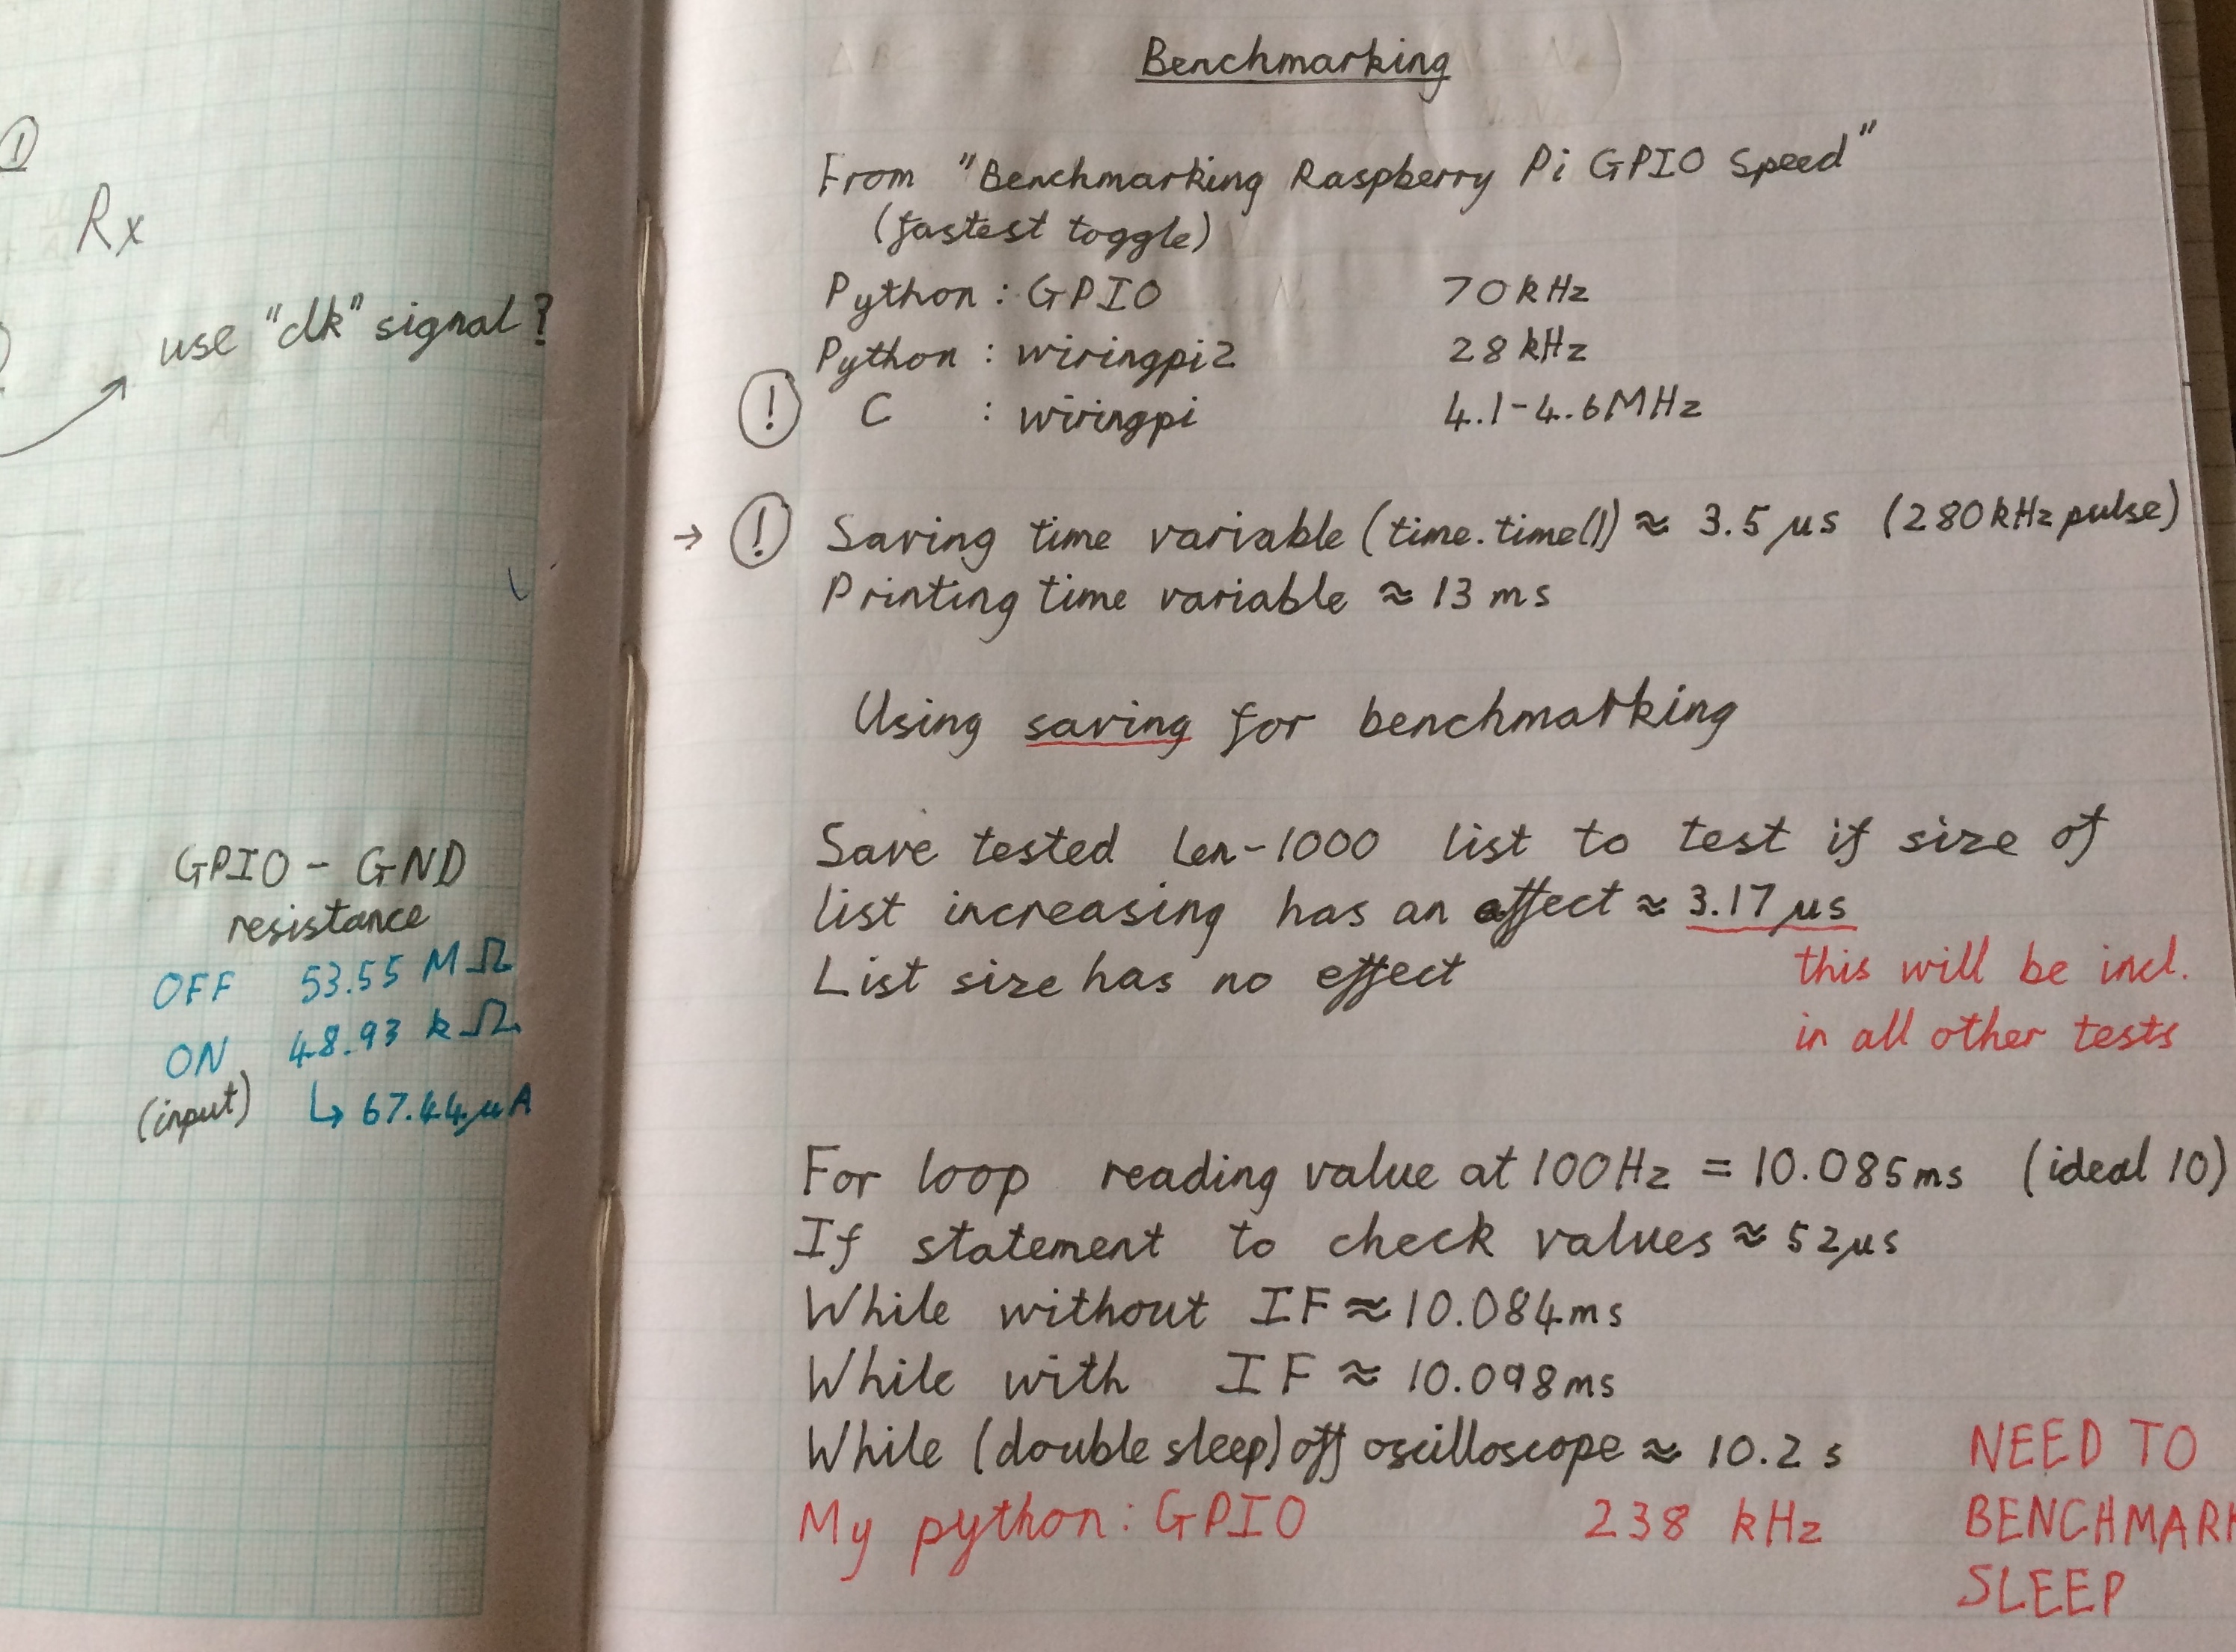 ①
Rx
use "clk" signal?
GPIO - GND
resistance
OFF 53.55 MΩ
ON 48.93 kΩ
(input) ↳ 67.44µA
Benchmarking
From "Benchmarking Raspberry Pi GPIO Speed"
(fastest toggle)
Python : GPIO 70kHz
Python : wiringpi2 28kHz
! C : wiringpi 4.1-4.6MHz
→ ! Saving time variable (time.time()) ≈ 3.5µs (280kHz pulse)
Printing time variable ≈ 13ms
Using saving for benchmarking
Save tested len-1000 list to test if size of
list increasing has an effect ≈ 3.17µs
List size has no effect
this will be incl.
in all other tests
For loop reading value at 100Hz = 10.085ms (ideal 10)
If statement to check values ≈ 52µs
While without IF ≈ 10.084ms
While with IF ≈ 10.098ms
While (double sleep) off oscilloscope ≈ 10.2s
My python: GPIO 238 kHz
NEED TO
BENCHMARK
SLEEP